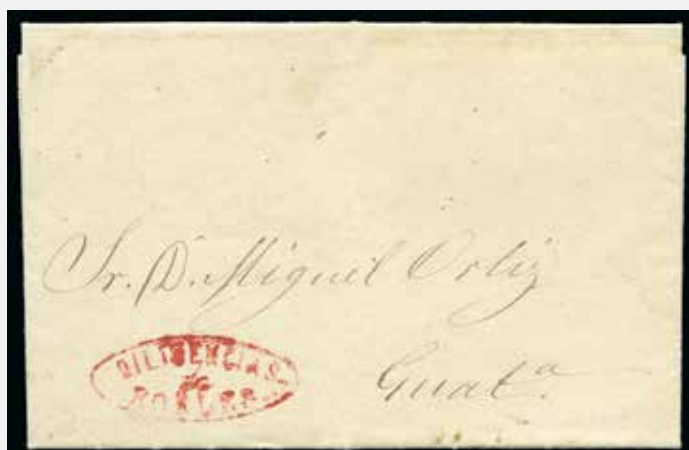 Sr. D. Miguel Ortiz
Guat.ª
DILIGENCIAS
DE